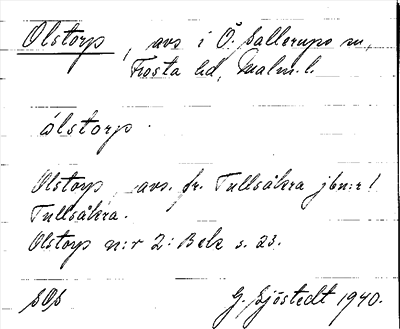 Olstorp, avs i Ö. Sallerups sn,
Frosta hd, Malm. l.
ólstorp.
Olstorp, avs. fr. Tullsåkra jbnr 1
Tullsåkra.
Olstorp n:r 2: Bek s. 23.
sOs G. Sjöstedt 1940.